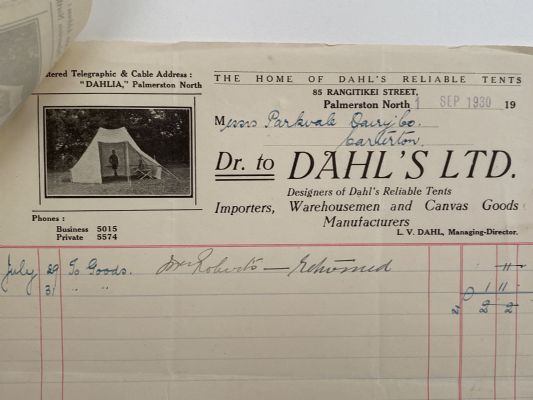 tered Telegraphic & Cable Address :
"DAHLIA," Palmerston North
THE HOME OF DAHL'S RELIABLE TENTS
85 RANGITIKEI STREET,
Palmerston North 1 SEP 1930 19
Messrs Parkvale Dairy Co.
Carterton.
Dr. to DAHL'S LTD.
Designers of Dahl's Reliable Tents
Importers, Warehousemen and Canvas Goods
Manufacturers
L. V. DAHL, Managing-Director.
Phones :
Business 5015
Private 5574
July 29 To Goods. Roberts — Returned 11
31 " " 1 11
2 2